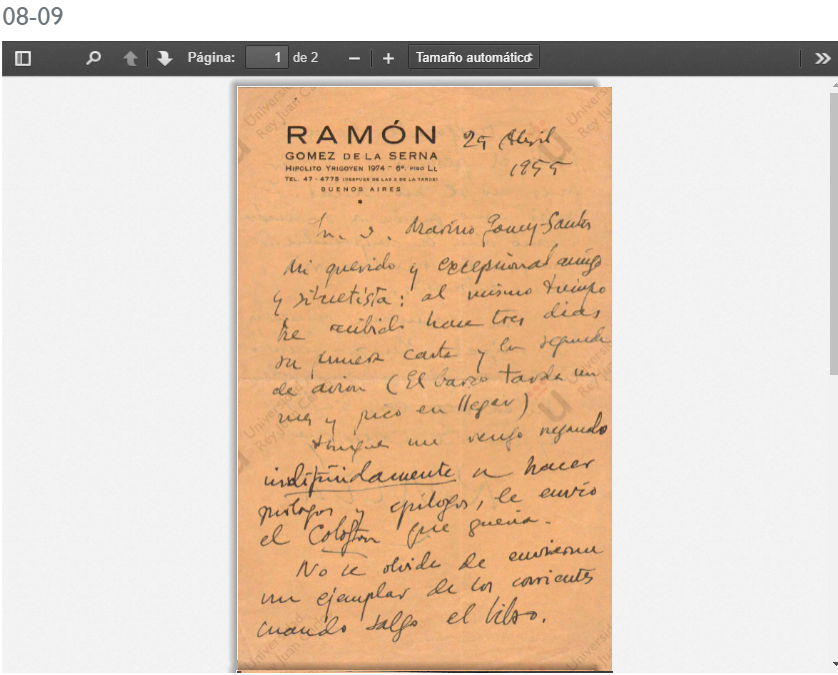 08-09
Página: 1 de 2 Tamaño automático
RAMÓN
GOMEZ DE LA SERNA
HIPOLITO YRIGOYEN 1974 - 6º. PISO LL
TEL. 47 - 4778 (DESPUES DE LAS 3 DE LA TARDE)
BUENOS AIRES
25 Abril
1955
Marino Gomez-Santos
Mi querido y excepcional amigo
y siluetista: al mismo tiempo
he recibido hace tres dias
su primera carta y la segunda
de avion (El barco tarda un
mes y pico en llegar)
Aunque me vengo negando
indefinidamente a hacer
prologos y epilogos, le envio
el Colofon que queria.
No se olvide de enviarme
un ejemplar de los corrientes
cuando salga el libro.
Universidad
Rey Juan Carlos